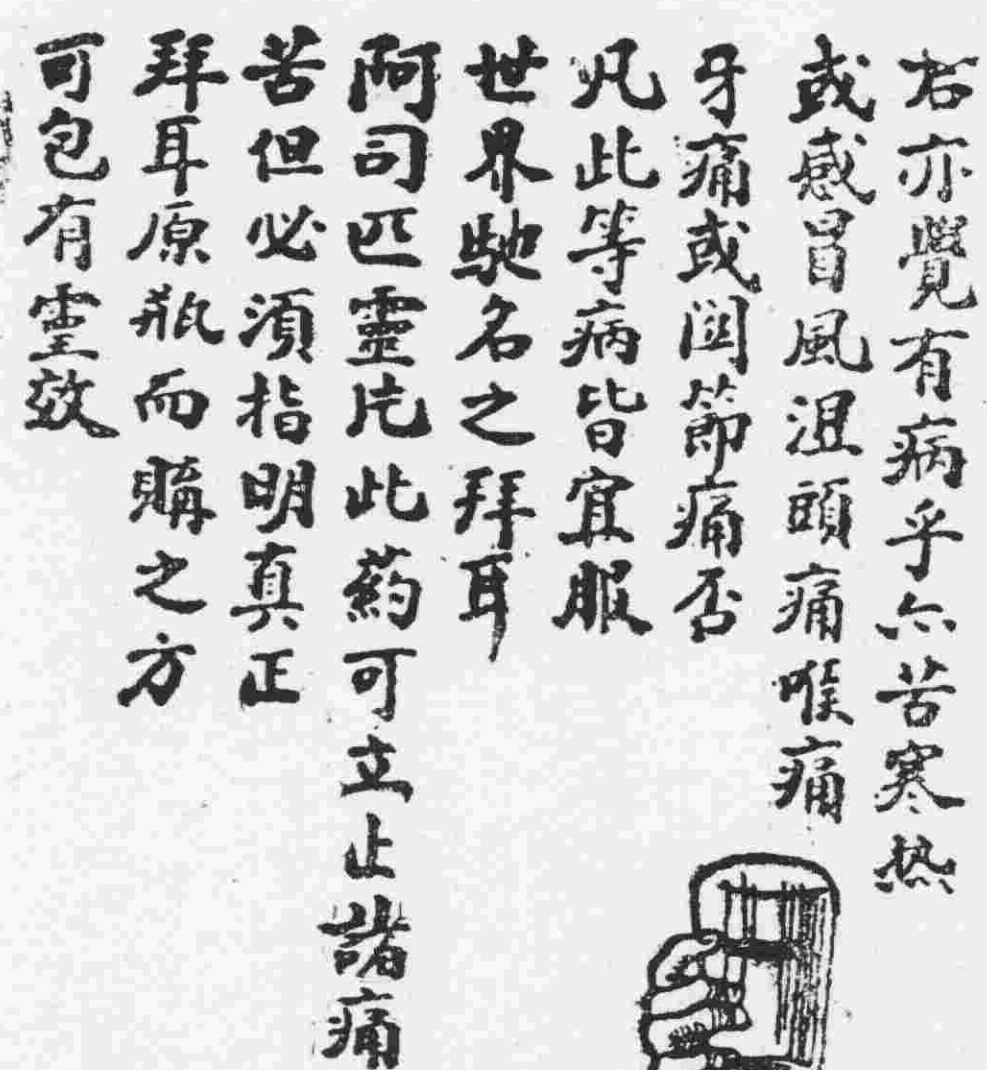 君亦覺有病乎亦苦寒热
或感冒風湿頭痛喉痛
牙痛或関節痛否
凡此等病皆宜服
世界馳名之拜耳
阿司匹靈片此葯可立止諸痛
苦但必須指明真正
拜耳原瓶而購之方
可包有霊效